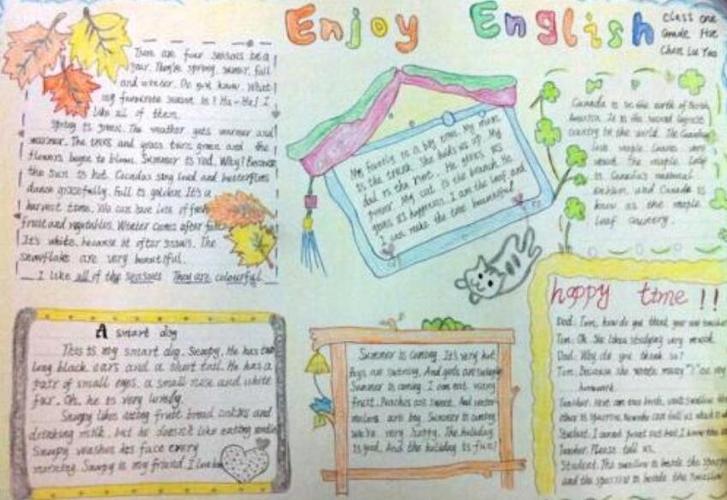 Enjoy English
class one
Grade Five
Chen Lu Yao
There are four seasons in a
year. They're spring, summer, fall
and winter. Do you know What
my favourite season is? Ha-Ha! I
like all of them.
spring is green. The weather gets warmer and
warmer. The trees and grass turns green and the
flowers begin to bloom. Summer is red. Why? Because
the sun is hot. Cicadas sing loud and butterflies
dance gracefully. Fall is golden. It's a
harvest time. We can have lots of fresh
fruit and vegetables. Winter comes after fall
It's white, because it often snows. The
snowflake are very beautiful.
I like all of the seasons They are colourful.
My family is a big tree. My mum
is the trunk. She holds us up. My
dad is the root. He gives us
power. My is the branch. He
gives us happiness. I am the leaf and
I can make the tree beautiful
Canada is in the north of North
America. It is the second largest
country in the world. The Canadian
love maple leaves very
much the maple leaf
is Canada's national
and Canada is
know as the maple
leaf country.
A smart dog
This is my smart dog, Snoopy. He has two
long black ears and a short tail. He has a
pair of small eyes, a small nose and white
fur. Oh, he is very lovely.
Snoopy likes eating fruit bread cookies and
drinking milk, but he doesn't like eating
Snoopy washes his face every
morning. Snoopy is my friend, I love him
Summer is coming. It's very hot
Boys are swimming. And girls are
Summer is coming. I can eat many
fruit. Peaches are sweet. And water
melons are big. Summer is coming
we're very happy. The holiday
is good. And the holiday is fun!
happy time !!
Dad: Tom, how do you think your new
Tom: Oh. She likes studying very much.
Dad: Why do you think so?
Tom: Because she wrote many "?" on my
homework.
Teacher: Here are two birds, one's swallow
other is sparrow. Now who can tell us which
Student: I cannot point out but I know the
Teacher: Please tell us.
Student: The swallow is beside the sparrow
and the sparrow is beside the swallow